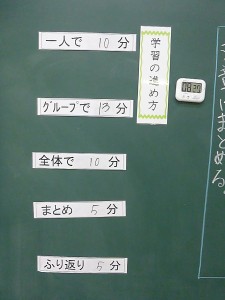 学習の進め方
一人で 10 分
グループで 13 分
全体で 10 分
まとめ 5 分
ふり返り 5 分
まとめる。